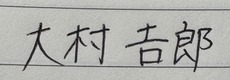 大村 吉郎